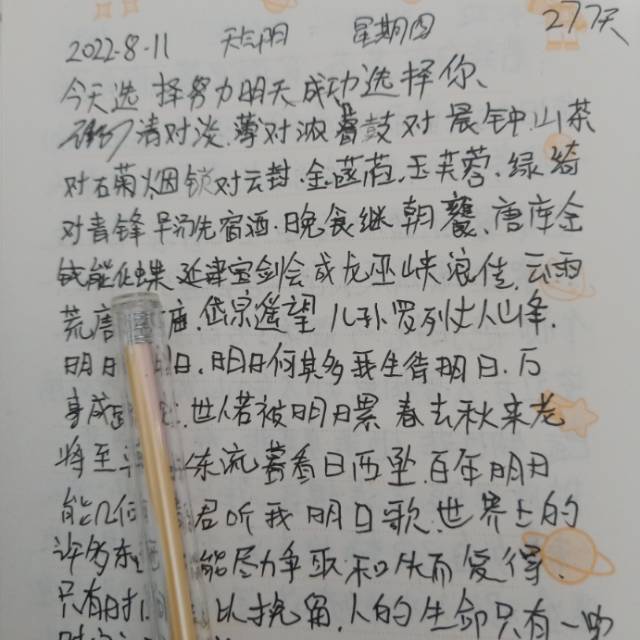 2022.8.11 天气阴 星期四 277天
今天选择努力明天成功选择你、
清对淡.薄对浓暮鼓对晨钟.山茶
对石菊烟锁对云封.金菡萏.玉芙蓉.绿绮
对青锋早汤先宿酒.晚食继朝饔.唐库金
钱能化蝶延津宝剑会成龙巫峡浪传.云雨
荒唐庙.岱宗遥望儿孙罗列丈人峰.
明日日.明日何其多我生待明日.万
事成.世人若被明日累春去秋来老
将至东流暮看日西坠.百年明日
能几何君听我明日歌.世界上的
许多东能尽力争取和失而复得.
只有时以挽留.人的生命只有一